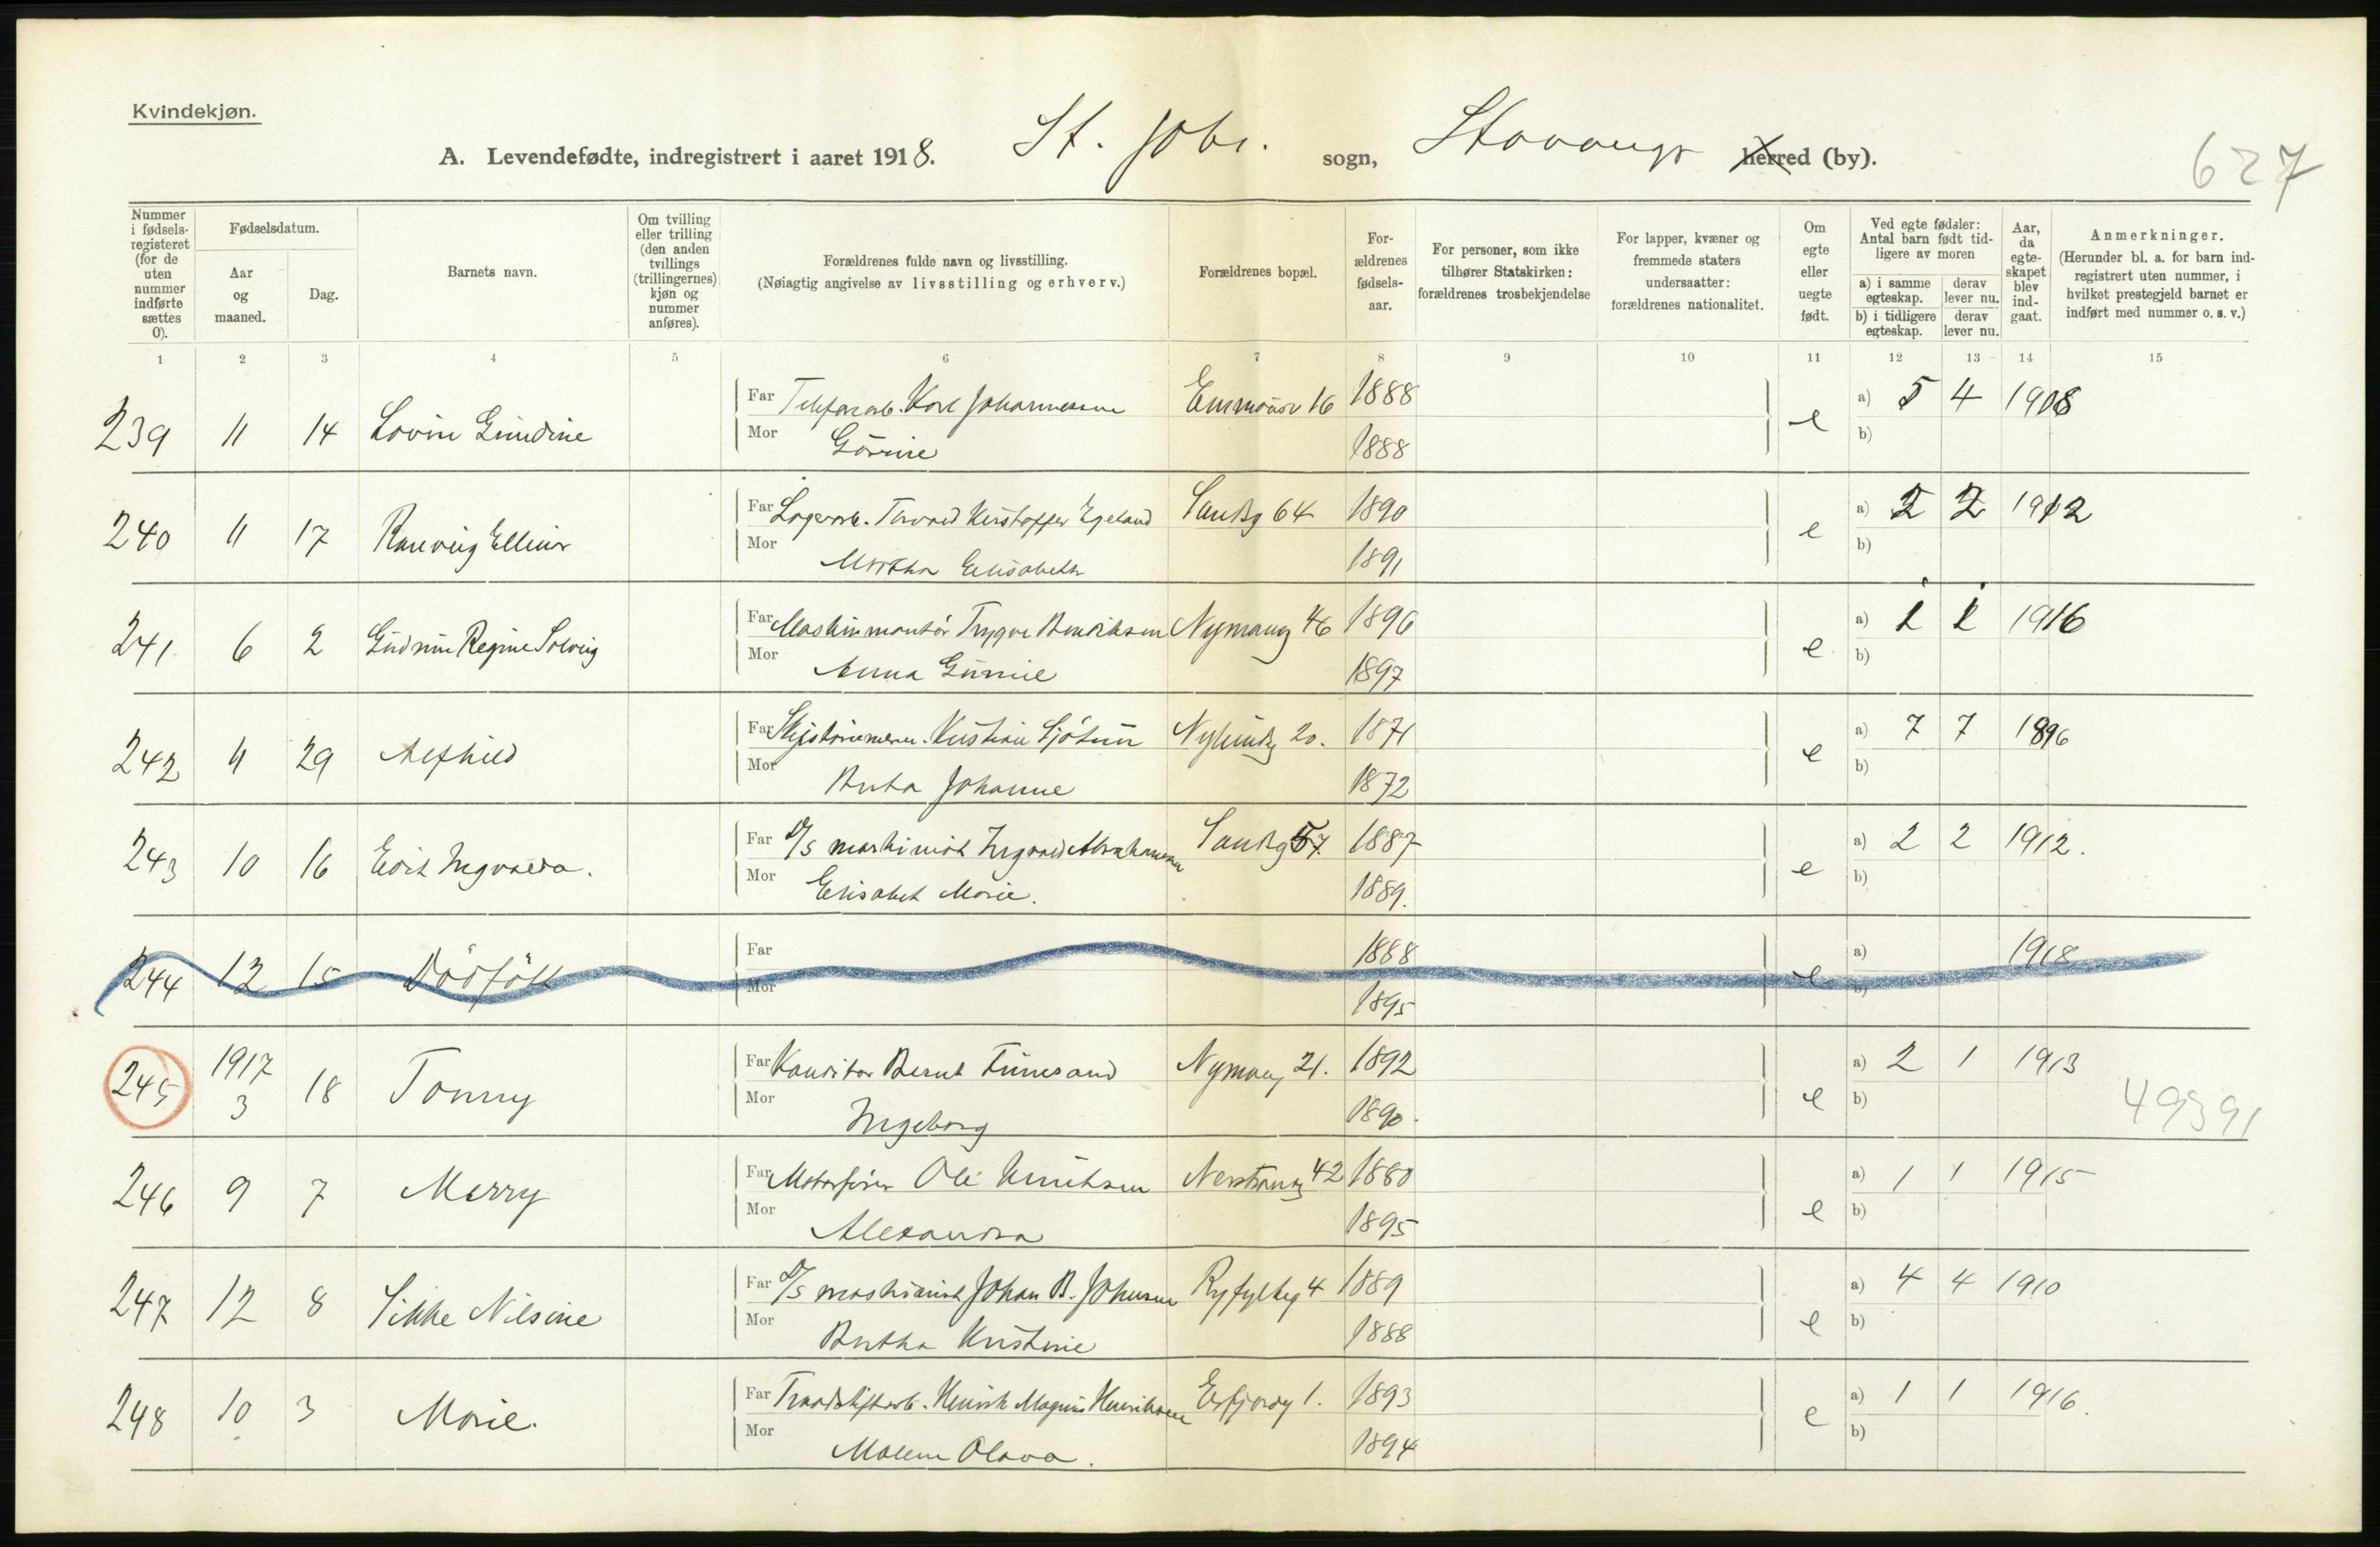 Kvindekjøn.
A. Levendefødte, indregistrert i aaret 1918. St. Joh. sogn, Stavanger herred (by).
627
Nummer i fødselsregisteret (for de uten nummer indførte sættes 0).
Fødselsdatum.
Aar og maaned.
Dag.
Barnets navn.
Om tvilling eller trilling (den anden tvillings (trillingernes) kjøn og nummer anføres).
Forældrenes fulde navn og livsstilling.
(Nøiagtig angivelse av livsstilling og erhverv.)
Forældrenes bopæl.
Forældrenes fødselsaar.
For personer, som ikke tilhører Statskirken: forældrenes trosbekjendelse
For lapper, kvæner og fremmede staters undersaatter: forældrenes nationalitet.
Om egte eller uegte født.
Ved egte fødsler: Antal barn født tidligere av moren
a) i samme egteskap. derav lever nu.
b) i tidligere egteskap. derav lever nu.
Aar, da egteskapet blev indgaat.
Anmerkninger.
(Herunder bl. a. for barn indregistrert uten nummer, i hvilket prestegjeld barnet er indført med nummer o. s. v.)
1 2 3 4 5 6 7 8 9 10 11 12 13 14 15
239 11 14 Far Karl Johannessen 16 1888 e a) 5 4 1908
Mor 1888 b)
240 11 17 Far Egeland Sandg 64 1890 e a) 2 2 1912
Mor Martha Elisabeth 1891 b)
241 6 2 Gudrun Regine Solveig Far Maskinmontör Trygve Bendiksen Nymansg 46 1896 e a) 1 1 1916
Mor Anna Gunnie 1897 b)
242 11 29 Alfhild Far Kristian Nylundg 20. 1871 e a) 7 7 1896
Mor Berta Johanne 1872 b)
243 10 16 Edit Ingvalda. Far D/S maskinist Ingvald Abrahamsen Sandg 57. 1887 e a) 2 2 1912.
Mor Elisabet Marie. 1889. b)
244 12 15 Dödfödt Far 1888 e a) 1918
Mor 1895 b)
245 1917 3 18 Tonny Far Konditor Bernt Tunesand Nymansg 21. 1892 e a) 2 1 1913
Mor Ingeborg 1890. b) 49391
246 9 7 Merry Far Motorfører Ole 42 1880 e a) 1 1 1915
Mor Alexandra 1895 b)
247 12 8 Sikke Nilsine Far D/S maskinist Johan B. Johnsen Ryfylkeg 4 1889 e a) 4 4 1910
Mor Bertha Kristine 1888 b)
248 10 3 Marie. Far Henrik Magnus Henriksen Erfjordg 1. 1893 e a) 1 1 1916.
Mor Malene Olava. 1894 b)